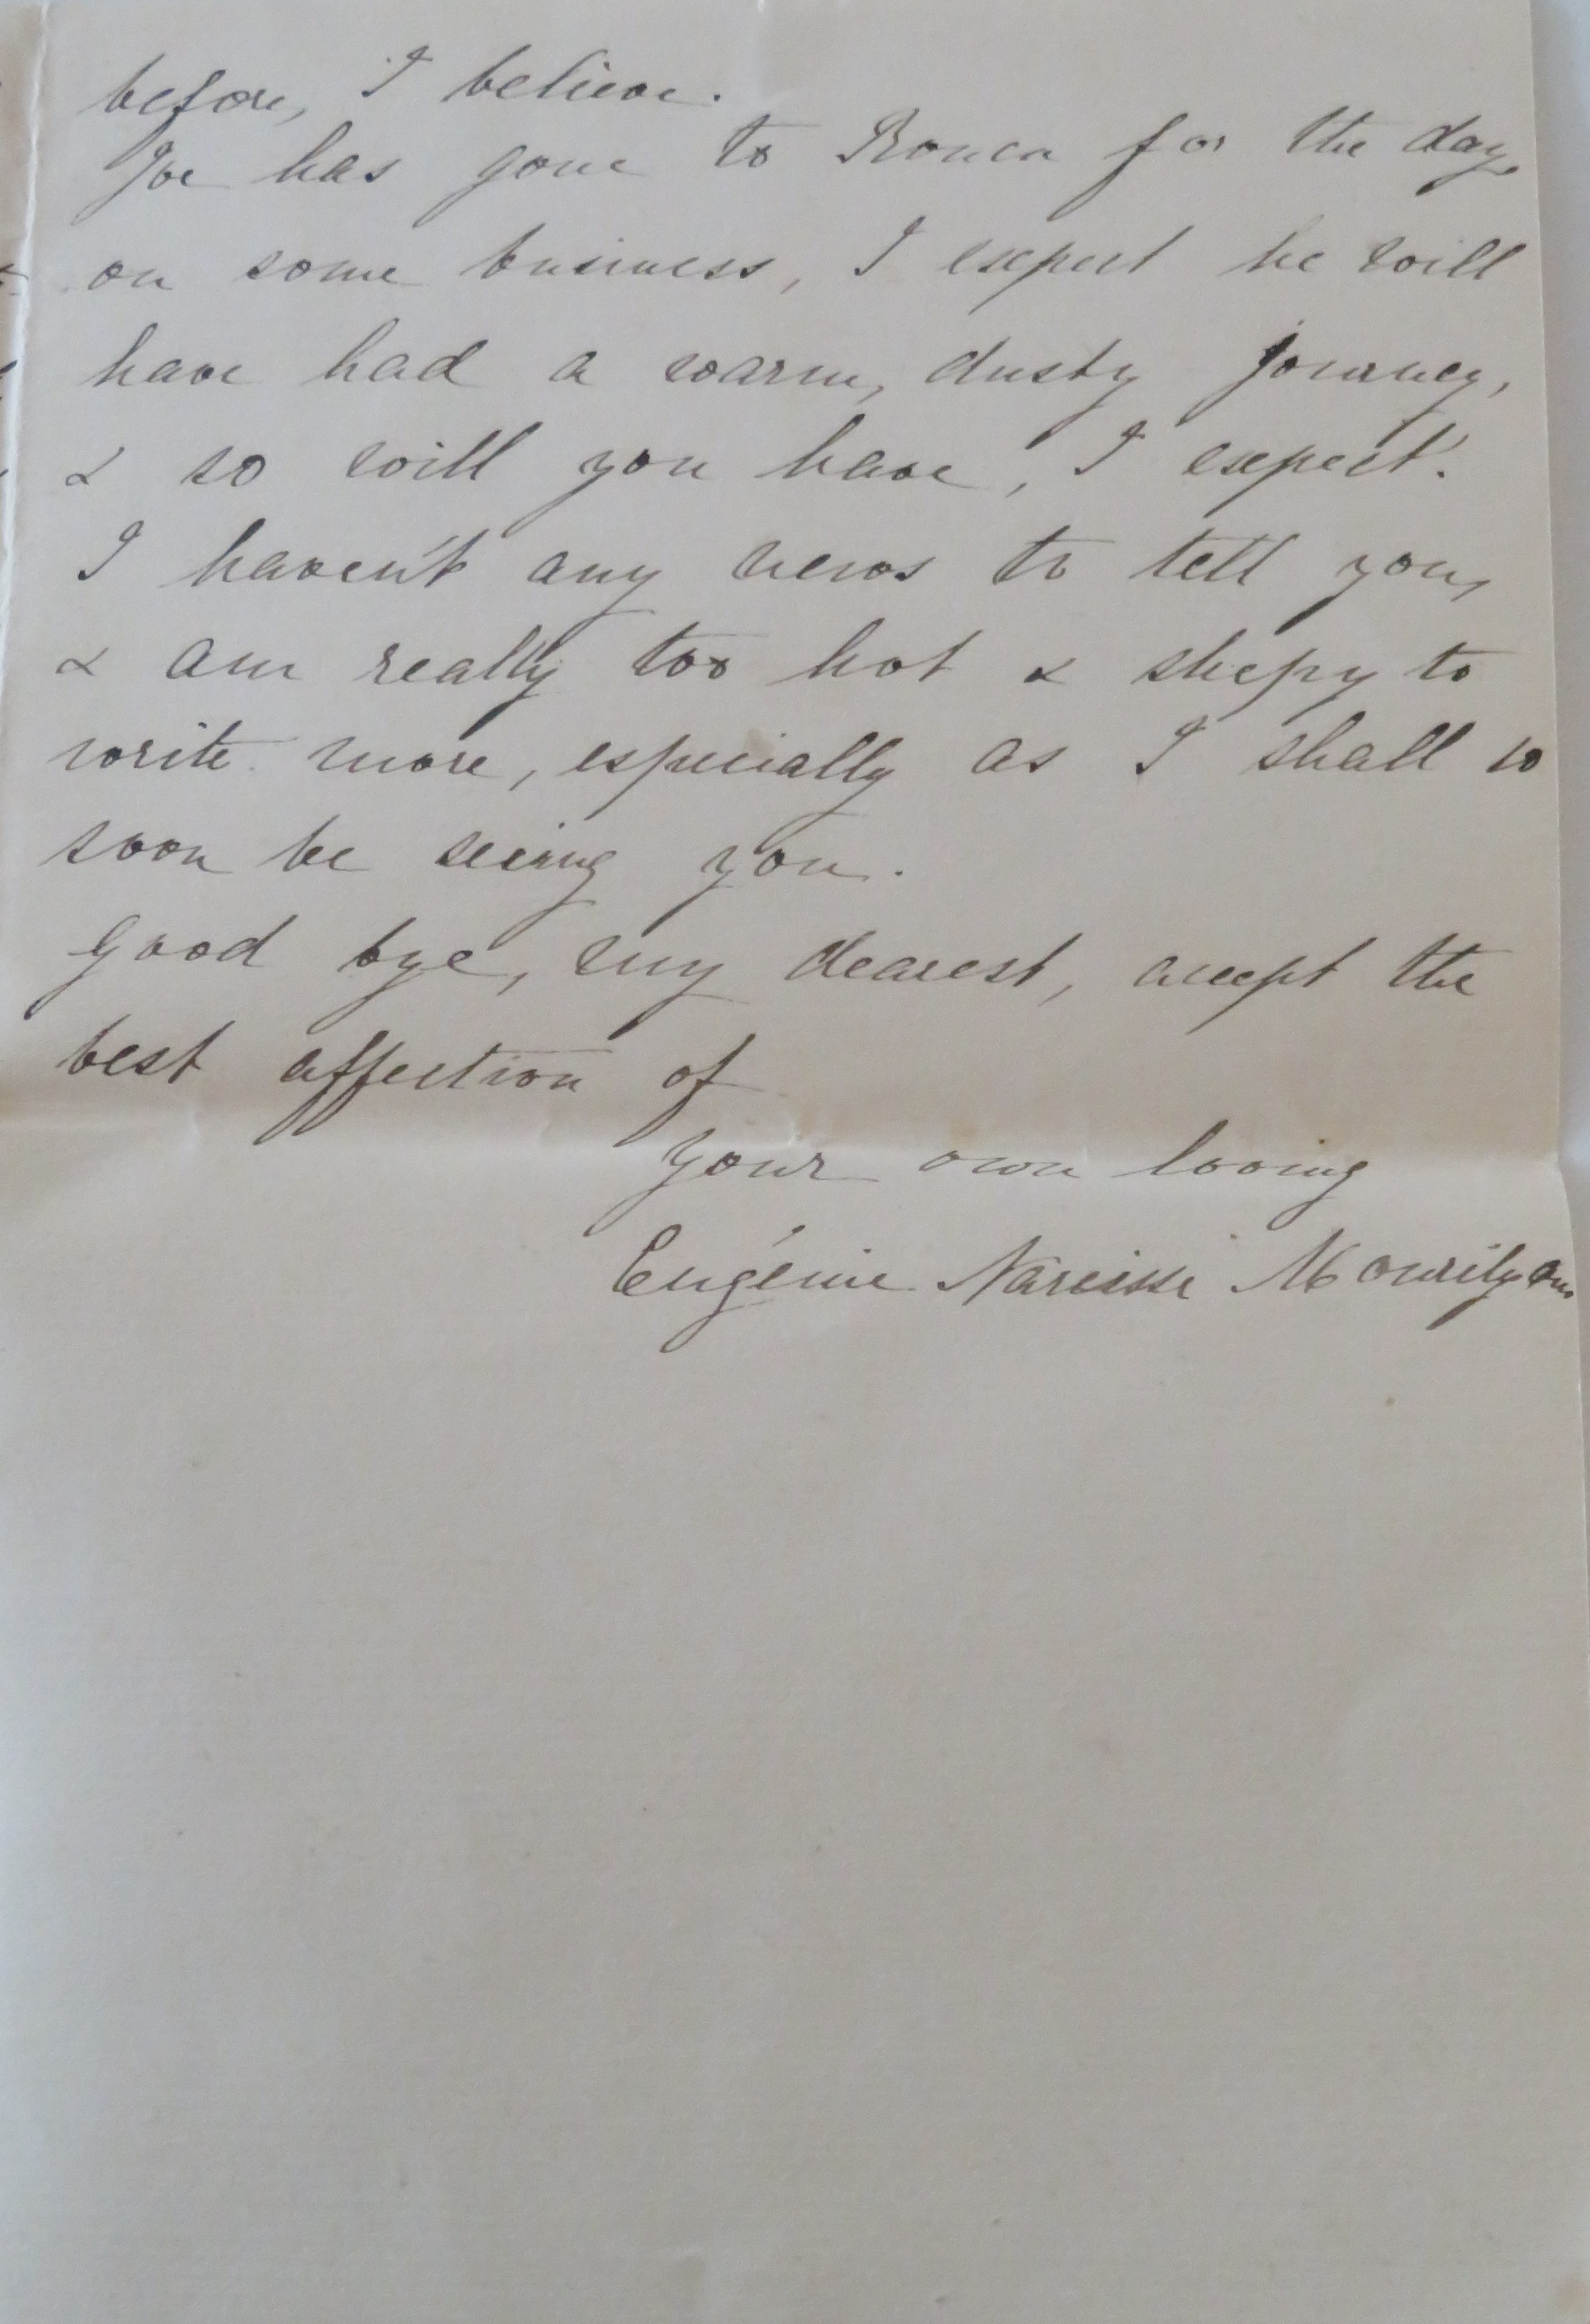 before, I believe.
Joe has gone to Rouen for the day,
on some business, I expect he will
have had a warm, dusty journey,
& so will you have, I expect.
I haven't any news to tell you,
& am really too hot & sleepy to
write more, especially as I shall so
soon be seeing you.
Good bye, my dearest, accept the
best affection of
your own loving
Eugénie Narcisse Mourilyan.